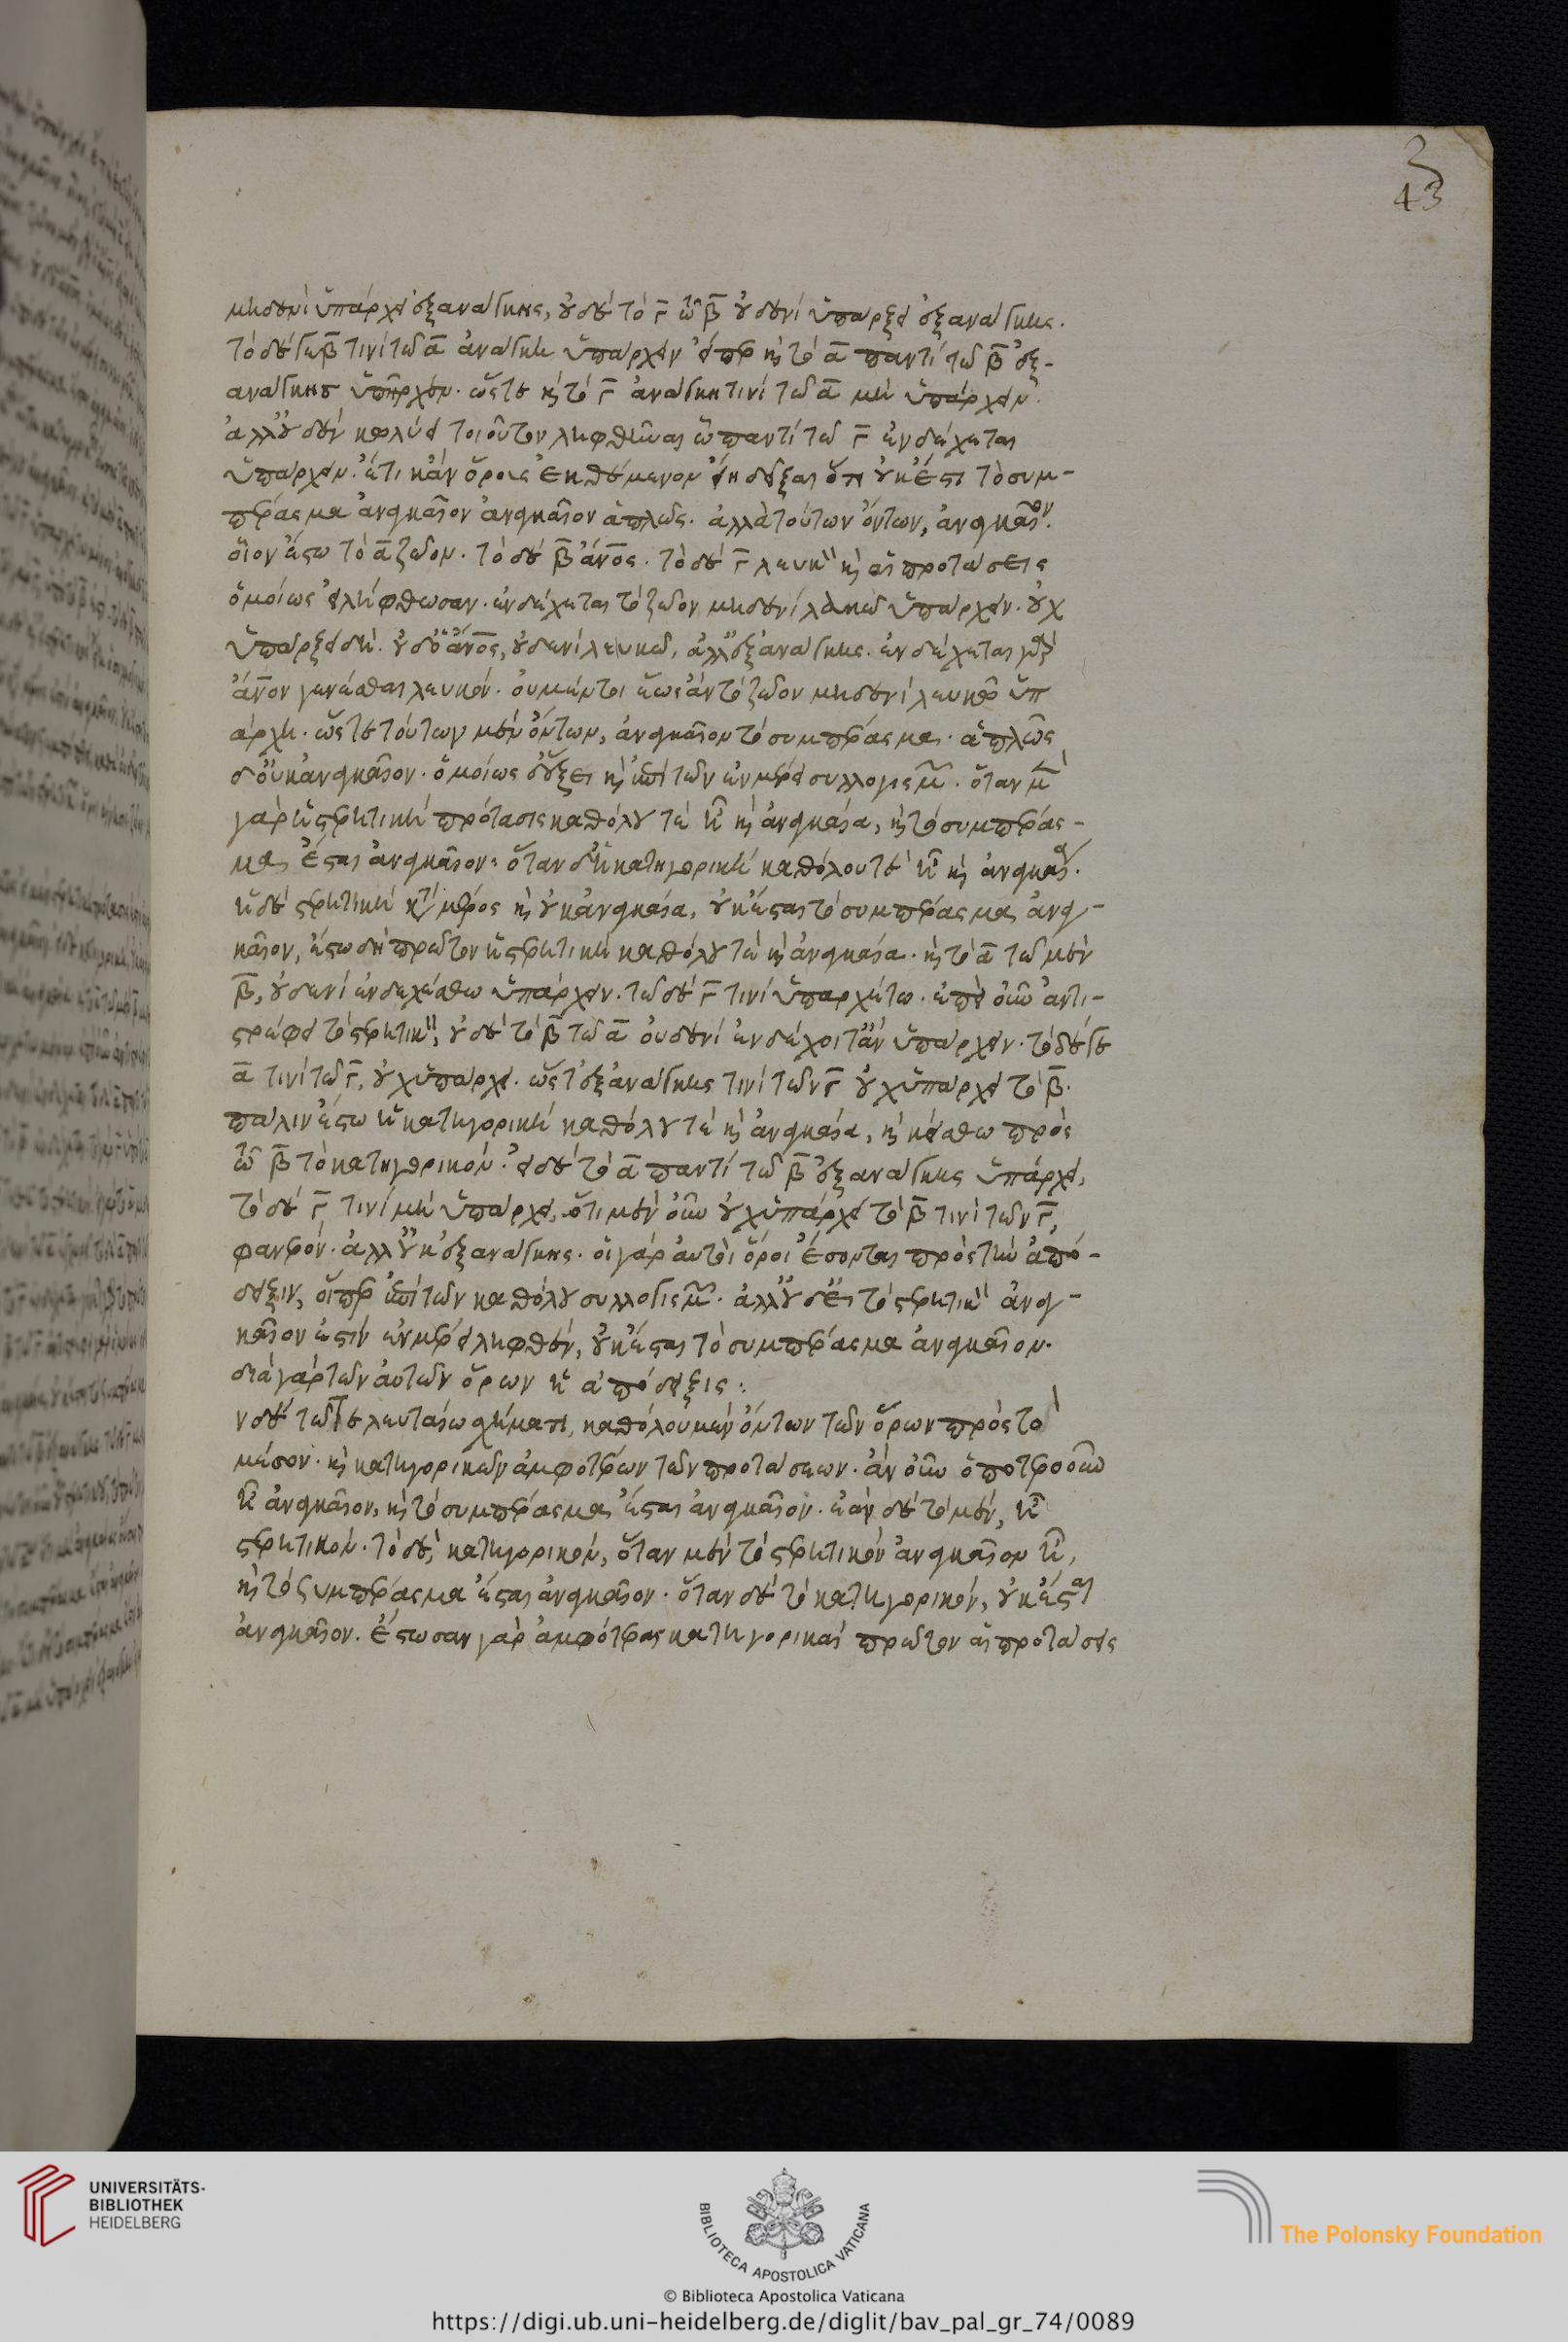 43
μηδενὶ ὑπάρχει ἐξ ἀνάγκης, οὐδὲ τὸ γ̄ τῷ β̄ οὐδενὶ ὑπάρξει ἐξ ἀνάγκης.
τὸ δέ γε β̄ τινὶ τῷ ᾱ ἀνάγκη ὑπάρχειν εἴπερ καὶ τὸ ᾱ παντὶ τῷ β̄ ἐξ-
ανάγκης ὑπῆρχεν. ὥστε καὶ τὸ γ̄ ἀνάγκη τινὶ τῷ ᾱ μὴ ὑπάρχειν.
ἀλλ' οὐδὲν κωλύει τοιοῦτον ληφθῆναι ᾧ παντὶ τὸ γ̄ ἐνδέχεται
ὑπάρχειν. ἔτι κἂν ὅρους ἐκθέμενον εἴη δεῖξαι ὅτι οὐκ ἔστι τὸ συμ-
πέρασμα ἀναγκαῖον ἀναγκαῖον ἁπλῶς. ἀλλὰ τούτων ὄντων, ἀναγκαῖον.
οἷον ἔστω τὸ ᾱ ζῷον. τὸ δὲ β̄ ἄνος. τὸ δὲ γ̄ λευκὸν καὶ αἱ προτάσεις
ὁμοίως εἰλήφθωσαν. ἐνδέχεται τὸ ζῷον μηδενὶ λευκῷ ὑπάρχειν. οὐχ
ὑπάρξει δὴ οὐδ' ὁ ἄνος, οὐδενὶ λευκῷ, ἀλλ' οὐκ ἐξ ἀνάγκης. ἐνδέχεται γὰρ
ἄνον γενέσθαι λευκόν. οὐ μέντοι ἕως ἂν τὸ ζῷον μηδενὶ λευκῷ ὑπ
άρχῃ. ὥστε τούτων μὲν ὄντων, ἀναγκαῖον τὸ συμπέρασμα. ἁπλῶς
δ' οὐκ ἀναγκαῖον. ὁμοίως δ' ἕξει καὶ ἐπὶ τῶν ἐν μέρει συλλογισμῶν. ὅταν μὲν
γὰρ ἡ στερητικὴ πρότασις καθόλου τε ᾖ καὶ ἀναγκαία, καὶ τὸ συμπέρασ-
μα ἔσται ἀναγκαῖον. ὅταν δὲ ἡ κατηγορικὴ καθόλου τε ᾖ καὶ ἀναγκαία.
ἡ δὲ στερητικὴ κατὰ μέρος καὶ οὐκ ἀναγκαία, οὐκ ἔσται τὸ συμπέρασμα ἀναγ-
καῖον, ἔστω δὴ πρῶτον ἡ στερητικὴ καθόλου τε καὶ ἀναγκαία. καὶ τὸ ᾱ τῷ μὲν
β̄, οὐδενὶ ἐνδεχέσθω ὑπάρχειν. τῷ δὲ γ̄ τινὶ ὑπαρχέτω. ἐπεὶ οὖν ἀντι-
στρέφει τὸ στερητικὸν, οὐδὲ τὸ β̄ τῷ ᾱ οὐδενὶ ἐνδέχοιτ' ἂν ὑπάρχειν. τὸ δέ γε
ᾱ τινὶ τῶ γ̄, οὐχ ὑπάρχει. ὥστ' ἐξ ἀνάγκης τινὶ τῶν γ̄ οὐχ ὑπάρχει τὸ β̄.
πάλιν ἔστω ἡ κατηγορικὴ καθόλου τε καὶ ἀναγκαία, καὶ κείσθω πρὸς
τῷ β̄ τὸ κατηγορικόν. εἰ δὲ τὸ ᾱ παντὶ τῷ β̄ ἐξ ἀνάγκης ὑπάρχει,
τὸ δὲ γ̄ τινὶ μὴ ὑπάρχει, ὅτι μὲν οὖν οὐχ ὑπάρχει τὸ β̄ τινὶ τῶν γ̄,
φανερόν. ἀλλ' οὐκ ἐξ ἀνάγκης. οἱ γὰρ αὐτοὶ ὅροι ἔσονται πρὸς τὴν ἀπό-
δειξιν, οἵπερ ἐπὶ τῶν καθόλου συλλογισμῶν. ἀλλ' οὐδ' εἰ τὸ στερητικὸν ἀναγ-
καῖον ἐστὶν ἐν μέρει ληφθὲν, οὐκ ἔσται τὸ συμπέρασμα ἀναγκαῖον.
διὰ γὰρ τῶν αὐτῶν ὅρων ἡ ἀπόδειξις:
ν δὲ τῷ τελευταίω σχήματι, καθόλου μὲν ὄντων τῶν ὅρων πρὸς τὸ
μέσον. καὶ κατηγορικῶν ἀμφοτέρων τῶν προτάσεων. ἂν οὖν ὁποτερονοῦν
ᾖ ἀναγκαῖον, καὶ τὸ συμπέρασμα ἔσται ἀναγκαῖον. ἐὰν δὲ τὸ μὲν, ᾖ
στερητικόν. τὸ δὲ, κατηγορικὸν, ὅταν μὲν τὸ στερητικὸν ἀναγκαῖον ᾖ,
καὶ τὸ συμπέρασμα ἔσται ἀναγκαῖον. ὅταν δὲ τὸ κατηγορικὸν, οὐκ ἔσται
ἀναγκαῖον. ἔστωσαν γὰρ ἀμφότεραι κατηγορικαὶ πρῶτον αἱ προτάσεις
UNIVERSITÄTS-
BIBLIOTHEK
HEIDELBERG
BIBLIOTECA APOSTOLICA VATICANA
The Polonsky Foundation
© Biblioteca Apostolica Vaticana
https://digi.ub.uni-heidelberg.de/diglit/bav_pal_gr_74/0089